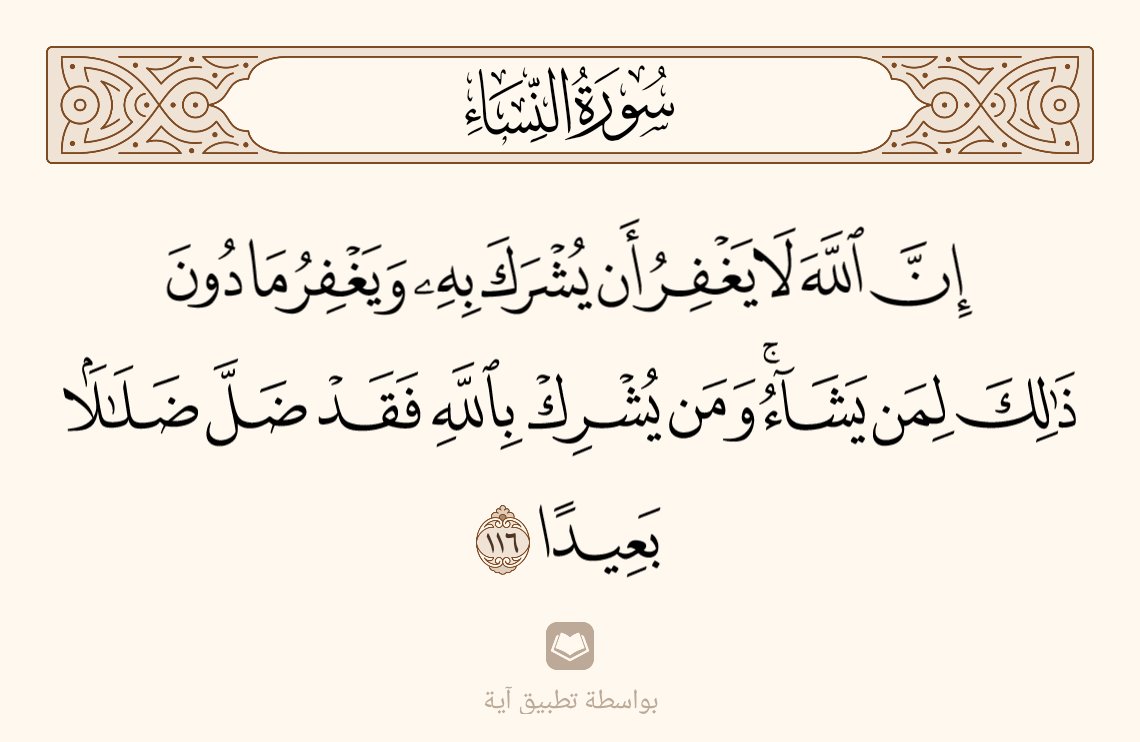 سُورَةُ النِّسَاءِ
إِنَّ ٱللَّهَ لَا يَغۡفِرُ أَن يُشۡرَكَ بِهِۦ وَيَغۡفِرُ مَا دُونَ
ذَٰلِكَ لِمَن يَشَآءُۚ وَمَن يُشۡرِكۡ بِٱللَّهِ فَقَدۡ ضَلَّ ضَلَٰلَۢا
بَعِيدًا ١١٦
بواسطة تطبيق آية